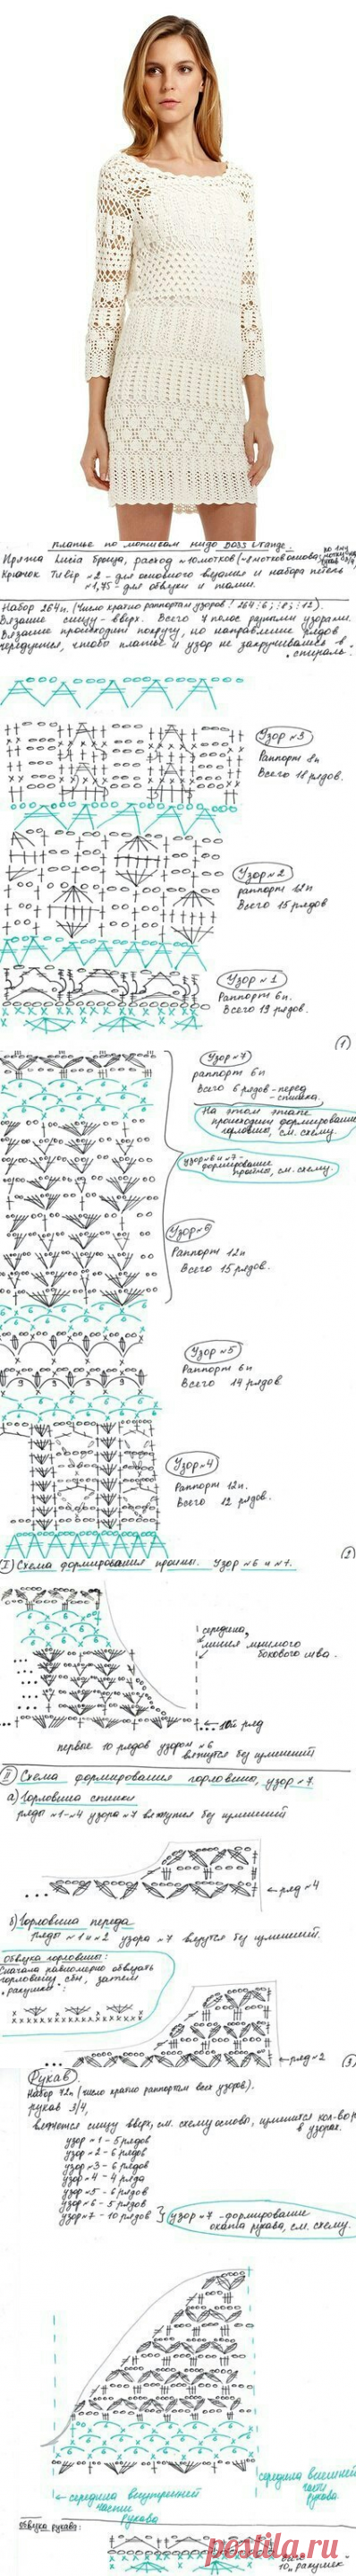 Платье по мотивам мидо BOSS Orange.
Пряжа Lucia бронза, расход ~10 мотков (~8 мотков основа,
Крючок Тулip №2 - для основного вязания и набора петель
№1,75 - для обвязки и
Набор 264п. (Число кратно раппортам узоров! 264:6; :8; :12).
Вязание снизу-вверх. Всего 7 полос разными узорами.
Вязание происходит по кругу, но направление рядов
чередуется, чтобы платье и узор не закручивались в
спираль.
Узор №3
Раппорт 8п
Всего 18 рядов.
Узор №2
раппорт 12п
Всего 15 рядов
Узор №1
Раппорт 6п.
Всего 19 рядов.
(1)
Узор №7
раппорт 6п
Всего 6 рядов - перед
- спинка.
На этом этапе
происходит формирование
горловины, см. схему.
узор №6 и №7 -
формирование
проймы, см. схему.
Узор №6
Раппорт 12п
Всего 15 рядов.
Узор №5
Раппорт 6п
Всего 14 рядов
Узор №4
Раппорт 12п.
Всего 12 рядов.
(2)
(I) Схема формирования проймы. Узор №6 и №7.
середина,
линия мнимого
бокового шва.
10й ряд
первые 10 рядов узором №6
вяжутся без изменений
(II) Схема формирования горловины, узор №7.
а) Горловина спинки
ряды №1-№4 узора №7 вяжутся без изменений
ряд №4
б) Горловина переда
ряды №1 и №2 узора №7 вяжутся без изменений.
Обвязка горловины:
Сначала равномерно обвязать
горловину сбн, затем
"ракушки":
ряд №2
(3)
Рукав.
Набор 72п (число кратно раппортам всех узоров).
рукав 3/4,
вяжется снизу вверх, см. схему основы, изменится кол-во р
в узорах.
узор №1 - 5 рядов
узор №2 - 6 рядов
узор №3 - 6 рядов
узор №4 - 4 ряда
узор №5 - 6 рядов
узор №6 - 5 рядов
узор №7 - 10 рядов
узор №7 - формирование
оката рукава, см. схему.
середина внутренней
части
рукава
середина внешней
части
рукава
Обвязка рукава:
10 "ракушек"
postila.ru